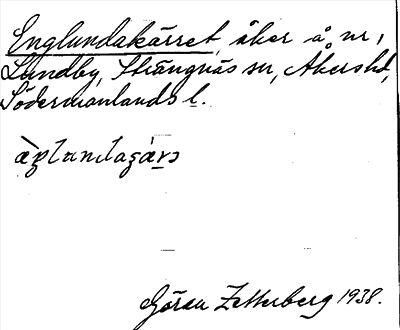 Englundakärret, åker å nr 1
Lundby, Strängnäs sn, Åkers hd,
Södermanlands l.
Göran Zetterberg 1938.